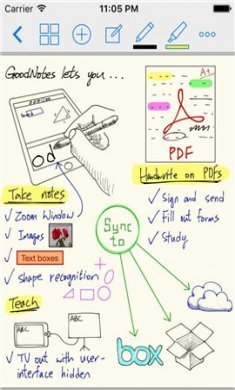 Carrier
11:05 PM
GoodNotes lets you...
A+
PDF
Od
Take notes
✓ Zoom Window
✓ Images
✓ Text boxes
✓ shape recognition
Handwrite on PDFs
✓ Sign and send
✓ Fill out forms
✓ Study
Sync
to
Teach
ABC
ABC
✓ TV out with user-
interface hidden
box